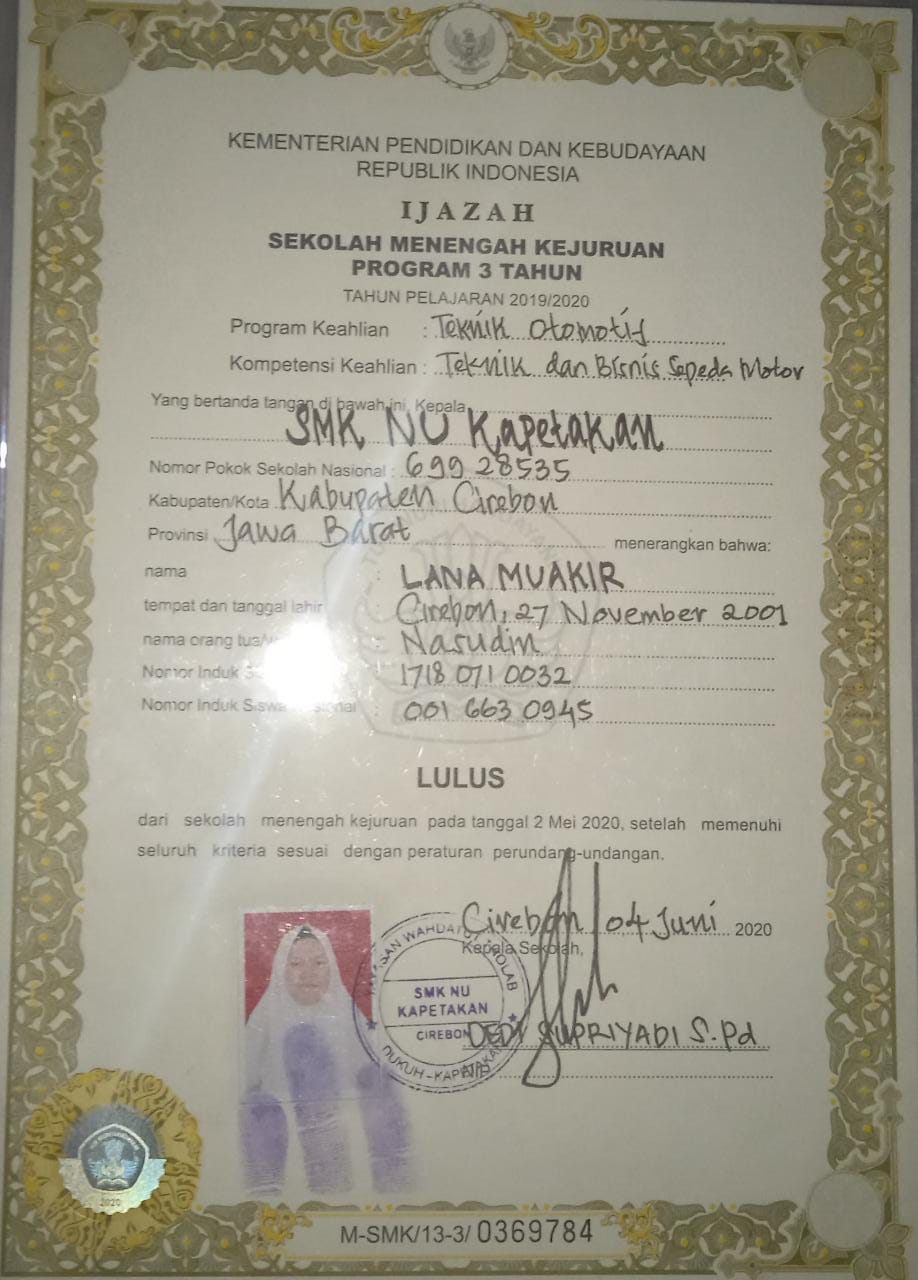 KEMENTERIAN PENDIDIKAN DAN KEBUDAYAAN
REPUBLIK INDONESIA
IJAZAH
SEKOLAH MENENGAH KEJURUAN
PROGRAM 3 TAHUN
TAHUN PELAJARAN 2019/2020
Program Keahlian : Teknik Otomotif
Kompetensi Keahlian : Teknik dan Bisnis Sepeda Motor
Yang bertanda tangan di bawah ini, Kepala
SMK NU Kapetakan
Nomor Pokok Sekolah Nasional : 699 28535
Kabupaten/Kota Kabupaten Cirebon
Provinsi Jawa Barat menerangkan bahwa:
nama : LANA MUAKIR
tempat dan tanggal lahir : Cirebon, 27 November 2001
nama orang tua/ : Nasudin
Nomor Induk : 1718 071 0032
Nomor Induk Siswa : 001 663 0945
LULUS
dari sekolah menengah kejuruan pada tanggal 2 Mei 2020, setelah memenuhi
seluruh kriteria sesuai dengan peraturan perundang-undangan.
Cirebon, 04 Juni 2020
Kepala Sekolah,
SMK NU
KAPETAKAN
CIREBON
DUKUH-KAPETAKAN
DEDI SUPRIYADI S.Pd
2020
M-SMK/13-3/ 0369784